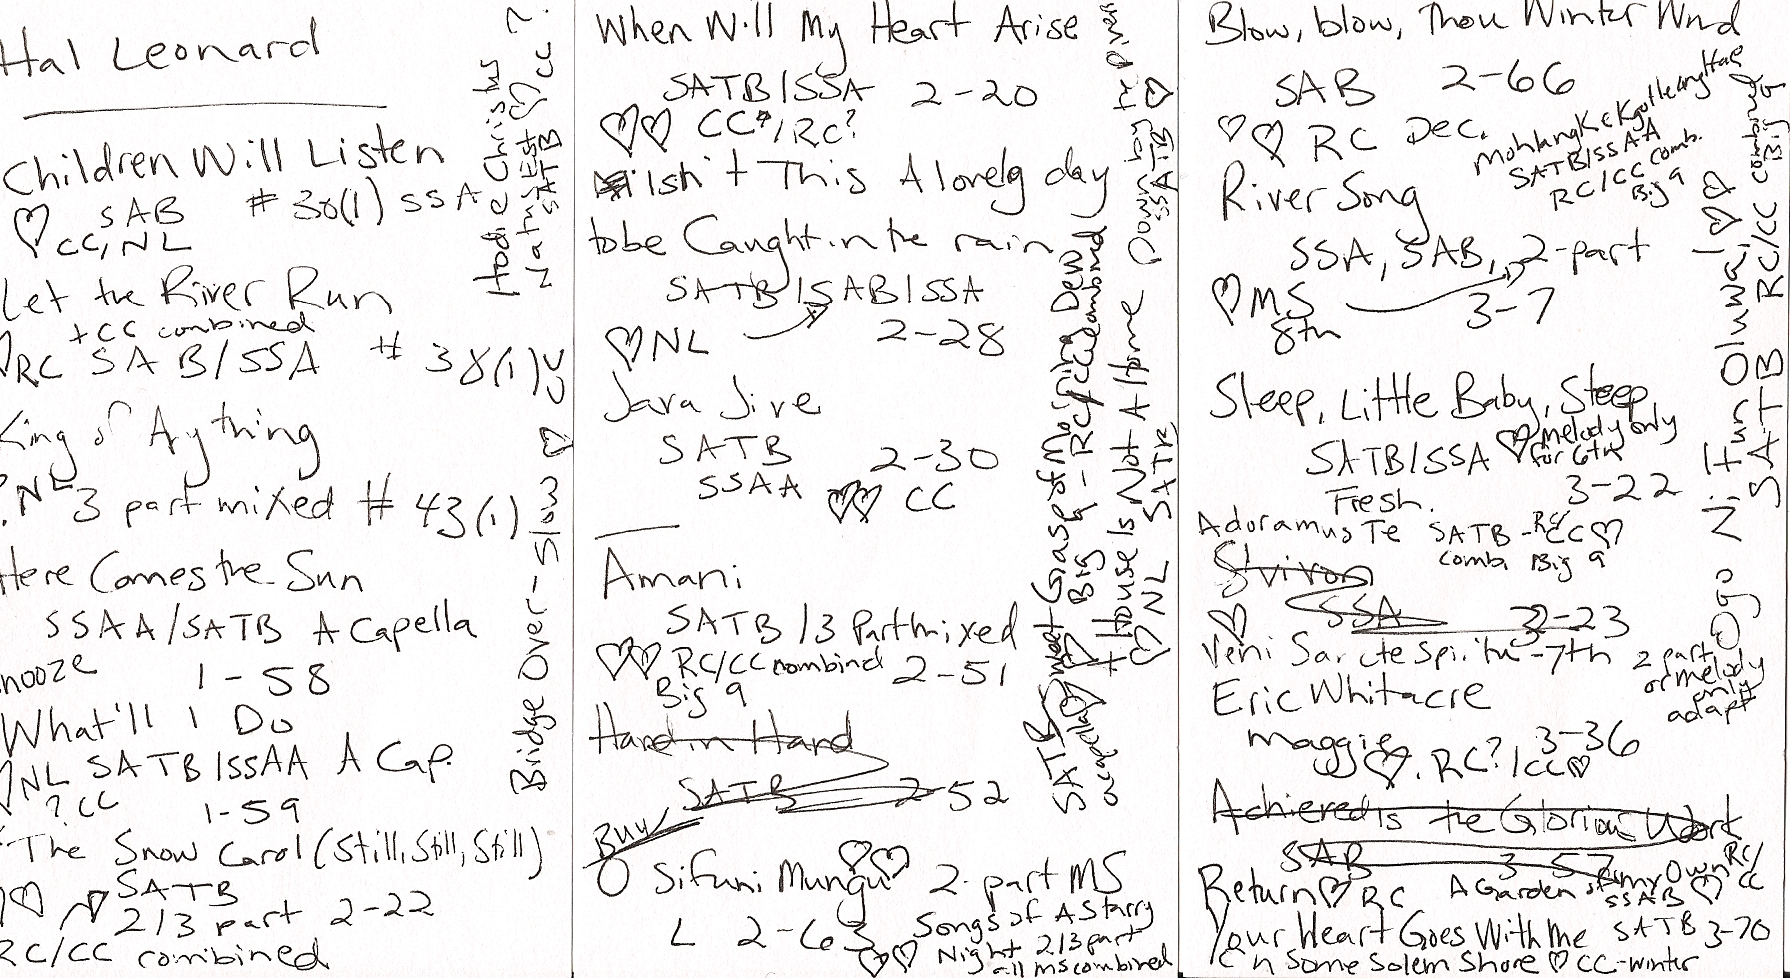 Hal Leonard
Children Will Listen
SAB # 30(1) SSA
CC, NL
Let the River Run
+ CC combined
RC SAB/SSA # 38(1) CC
King of Aything
NL 3 part mixed # 43(1)
Here Comes the Sun
SSAA/SATB A Capella
nooze 1-58
What'll I Do
NL SATB/SSAA A Cap.
? CC 1-59
The Snow Carol (Still, Still, Still)
SATB
2/3 part 2-22
RC/CC combined
Hodie Christus
Natus Est CC ?
SATB
Bridge Over - Slow CC
When Will My Heart Arise
SATB/SSA 2-20
CC/RC?
Isn't This A lovely day
to be Caught in the rain
SATB/SAB/SSA
NL 2-28
Java Jive
SATB 2-30
SSAA CC
Amani
SATB/3 Part mixed
RC/CC combined 2-51
Big 9
Hand in Hand
SATB 2-52
Buy
O Sifuni Mungu 2-part MS
L 2-63
Songs of A Starry
Night 2/3 part
all MS combined
SATB Sweet Grass of Morning Dew
acapella Big 9 - RC/CC combined
A House Is Not A Home
NL SATB
Down by the River
SSATB
Blow, blow, Thou Winter Wind
SAB 2-66
RC Dec.
SATB/SSAA
RC/CC comb.
Big 9
River Song
SSA, SAB, 2-part
MS 3-7
8th
Sleep, Little Baby, Sleep
SATB/SSA melody only
for 6th
Fresh. 3-22
Adoramus Te SATB - RC/CC
comb. Big 9
SSA 3-23
Veni Sancte Spiritu - 7th 2 part
or melody
only
adapt
Eric Whitacre
Maggie 3-36
RC?/CC
Achieved Is the Glorious Work
SAB 3-57
Return RC A Garden of my Own RC/
SSAB CC
Your Heart Goes With Me SATB 3-70
On Some Solem Shore CC-winter
Ogo Ni Fun Oluwa!
SATB RC/CC combined
Big 9